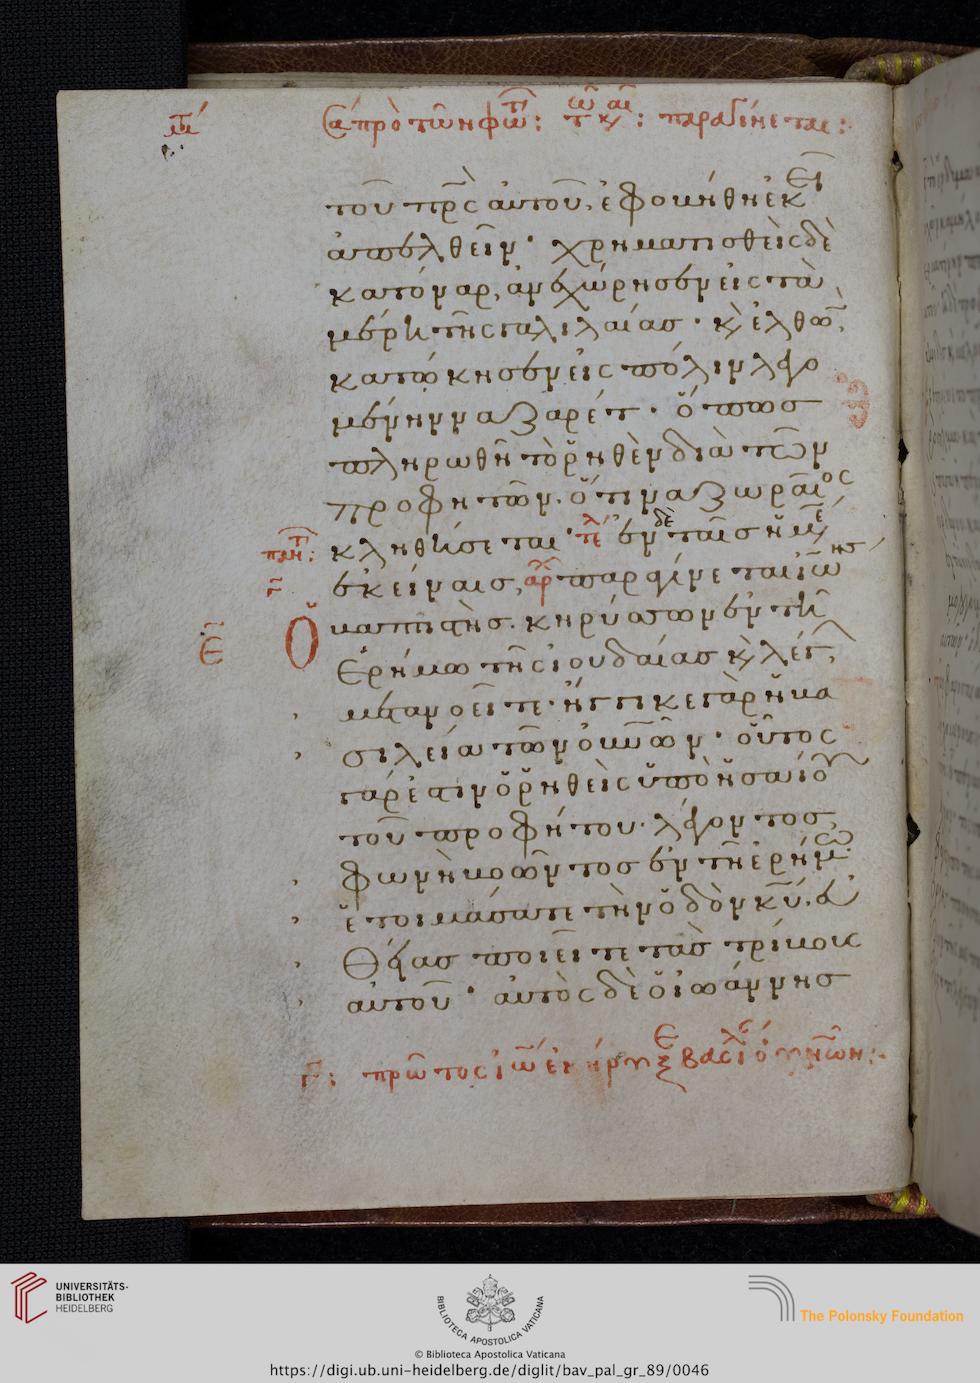 πρὸ τῶν φώτ: τῶ καιρ: παραγίνεται:
τοῦ πρς αὐτοῦ, ἐφοβήθη ἐκεῖ
ἀπελθεῖν· χρηματισθεὶς δὲ
κατόναρ, ἀνεχώρησεν εἰς τὰ
μέρη τῆς γαλιλαίας· κ ἐλθὼ,
κατώκησεν εἰς πόλιν λεγο
μένην ναζαρέτ· ὅπως
πληρωθῆ τὸ ῥηθὲν διὰ τῶν
προφητῶν· ὅτι ναζωραῖος
κληθήσεται· τε ἐν δὲ ταῖς ἡμε
ἐκείναις, αρ παραγίνεται ἰωνης
Ε
Ὁ βαπτιστὴς. κηρύσσων ἐν τῆ
ἐρήμω τῆς ἰουδαίας κ λέγ,
μετανοεῖτε· ἤγγικε γὰρ ἡ βα
σιλεία τῶν οὐνῶν· οὗτος
γάρ ἐστιν ὁ ῥηθεὶς ὑπὸ ἡσαΐου
τοῦ προφήτου· λέγοντος,
φωνὴ βοῶντος ἐν τῆ ἐρήμω·
ἑτοιμάσατε τὴν ὁδὸν κυ, εὐ
θείας ποιεῖτε τὰς τρίβους
αὐτοῦ· αὐτὸς δὲ ὁ ἰωάννης
Γ: πρῶτος ἰῶ ἐκήρυξε βασιλ οὐνῶν:
UNIVERSITÄTS-
BIBLIOTHEK
HEIDELBERG
BIBLIOTECA APOSTOLICA VATICANA
The Polonsky Foundation
© Biblioteca Apostolica Vaticana
https://digi.ub.uni-heidelberg.de/diglit/bav_pal_gr_89/0046